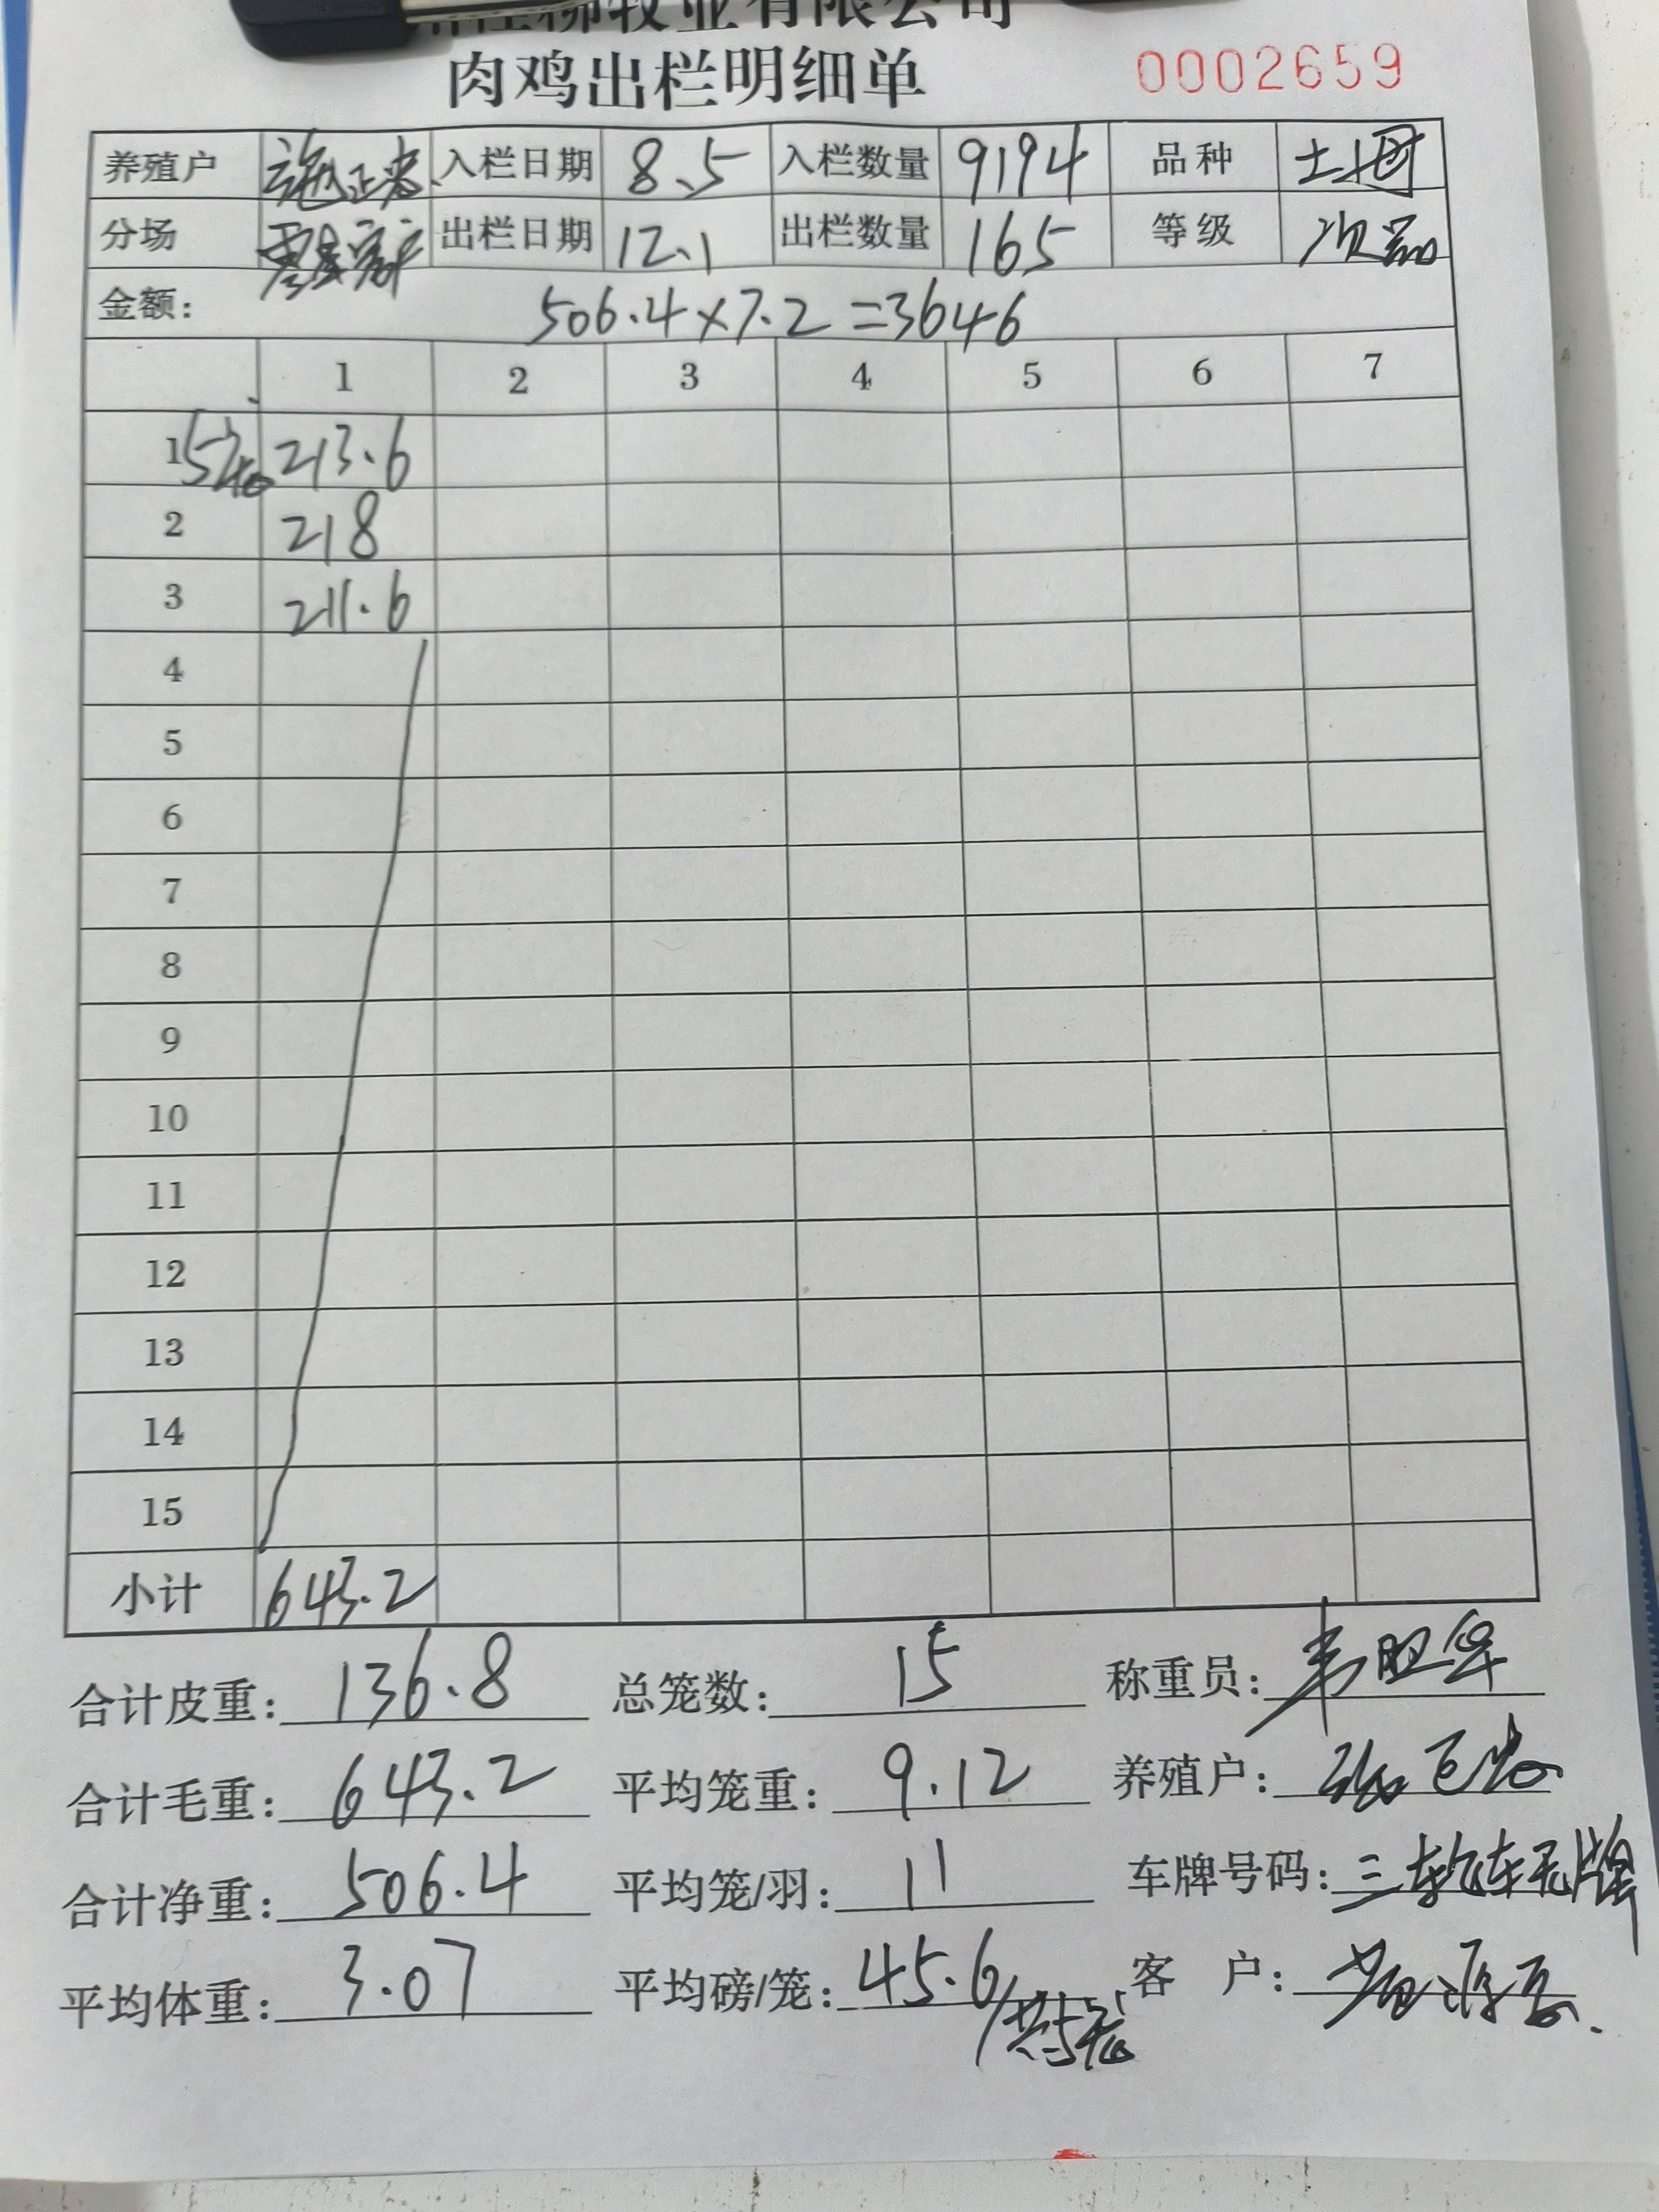 牧业有限公司
肉鸡出栏明细单 0002659
养殖户 施正 入栏日期 8.5 入栏数量 9194 品种 土
分场 零星客户 出栏日期 12.1 出栏数量 165 等级 次品
金额: 506.4×7.2=3646
1 2 3 4 5 6 7
1 5 213.6
2 218
3 211.6
4
5
6
7
8
9
10
11
12
13
14
15
小计 643.2
合计皮重: 136.8 总笼数: 15 称重员: 韦
合计毛重: 643.2 平均笼重: 9.12 养殖户:
合计净重: 506.4 平均笼/羽: 11 车牌号码: 三轮车无牌
平均体重: 3.07 平均磅/笼: 45.6/ 客 户: